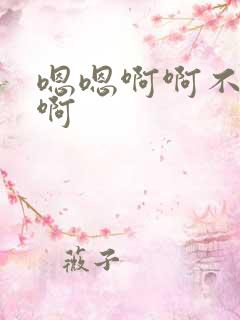 嗯嗯啊啊不
啊
薇子